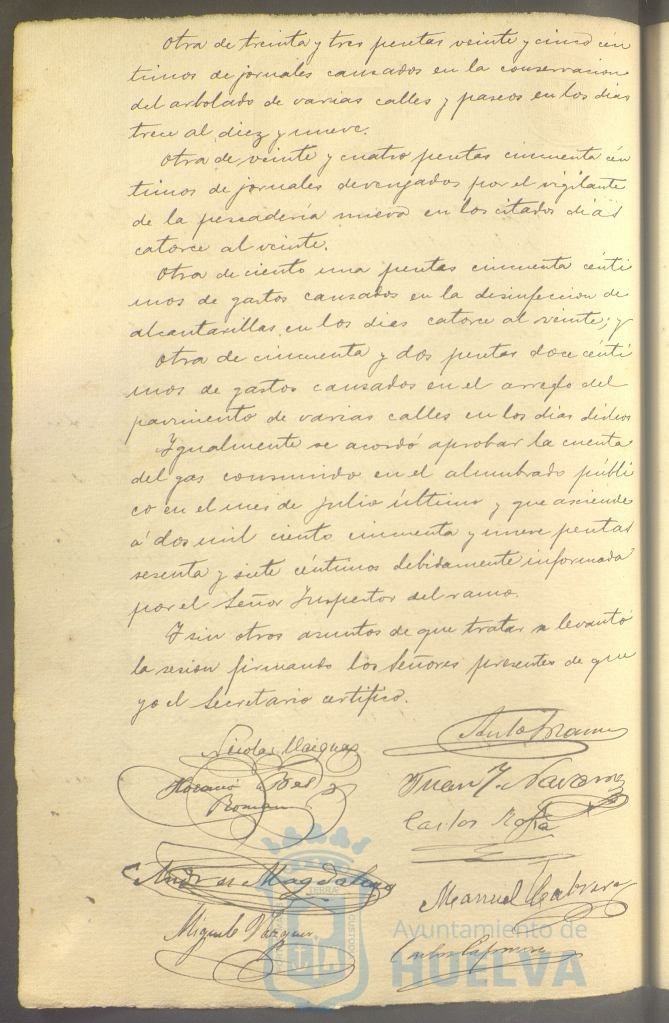 Otra de treinta y tres pesetas veinte y cinco cén
timos de jornales causados en la conservacion
del arbolado de varias calles y paseos en los dias
trece al diez y nueve.
Otra de veinte y cuatro pesetas cincuenta cén
timos de jornales devengados por el vigilante
de la pescadería nueva en los citados dias
catorce al veinte.
Otra de ciento una pesetas cincuenta centi
mos de gastos causados en la desinfeccion de
alcantarillas en los dias catorce al veinte; y
Otra de cincuenta y dos pesetas doce cénti
mos de gastos causados en el arreglo del
pavimento de varias calles en los dias dichos
Igualmente se acordó aprobar la cuenta
del gas consumido en el alumbrado públi
co en el mes de Julio último y que asciende
á dos mil ciento cincuenta y nueve pesetas
sesenta y siete céntimos debidamente informada
por el Señor Inspector del ramo.
Y sin otros asuntos de que tratar se levantó
la sesion firmando los Señores presentes de que
yo el Secretario certifico.
Nicolas Vazquez
Román
Juan J. Navarro
Carlos
Andres Magdaleno
Manuel Cabrera
Miguel Vazquez
Carlos
TERRAE
CUSTODIA
Ayuntamiento de
HUELVA